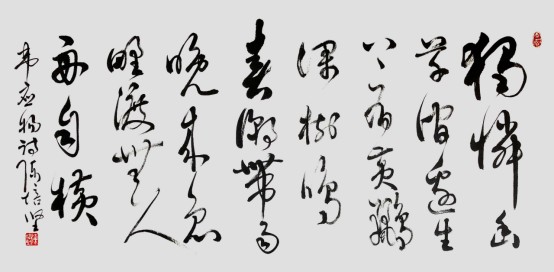 獨憐幽
草澗邊生
上有黃鸝
深樹鳴
春潮帶雨
晚來急
野渡無人
舟自橫
韋應物詩陳培堅